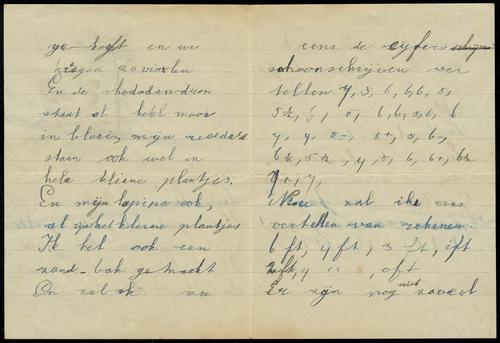 ge koft en we
krigen 20 violen
En de rhododendron
staat al heel mooi
in bloei, mijn reseda's
staan ook wel in
hele kleine plantjes.
En mijn lupine ook,
al zijn het kleine plantjes
Ik heb ook een
zand-bak ge maakt
En zal ik nu
eens de cijfers
schoonschrijven ver
tellen. 7, 5, 6, 6, 6, 5,
5½, 6, 5, 6, 6, 6, 6
7, 7, 5-, 5+, 5, 6,
6½, 5½, 7, 5, 6, 6+, 6½
7+, 7,
Nou zal ik eens
vertellen van rekenen.
6 ft, 4 ft, 3 ft, 1ft
2ft, 4 " , oft
Er zijn nog niet zoveel